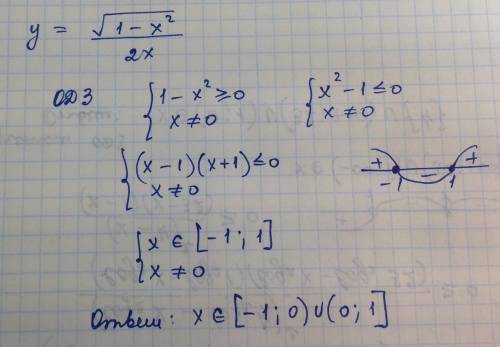 y = √(1 - x²) / 2x
ОДЗ { 1 - x² ≥ 0 { x² - 1 ≤ 0
x ≠ 0 x ≠ 0
{ (x - 1)(x + 1) ≤ 0 + - +
x ≠ 0 -1 1
{ x ∈ [-1; 1]
x ≠ 0
Ответ: x ∈ [-1; 0) ∪ (0; 1]